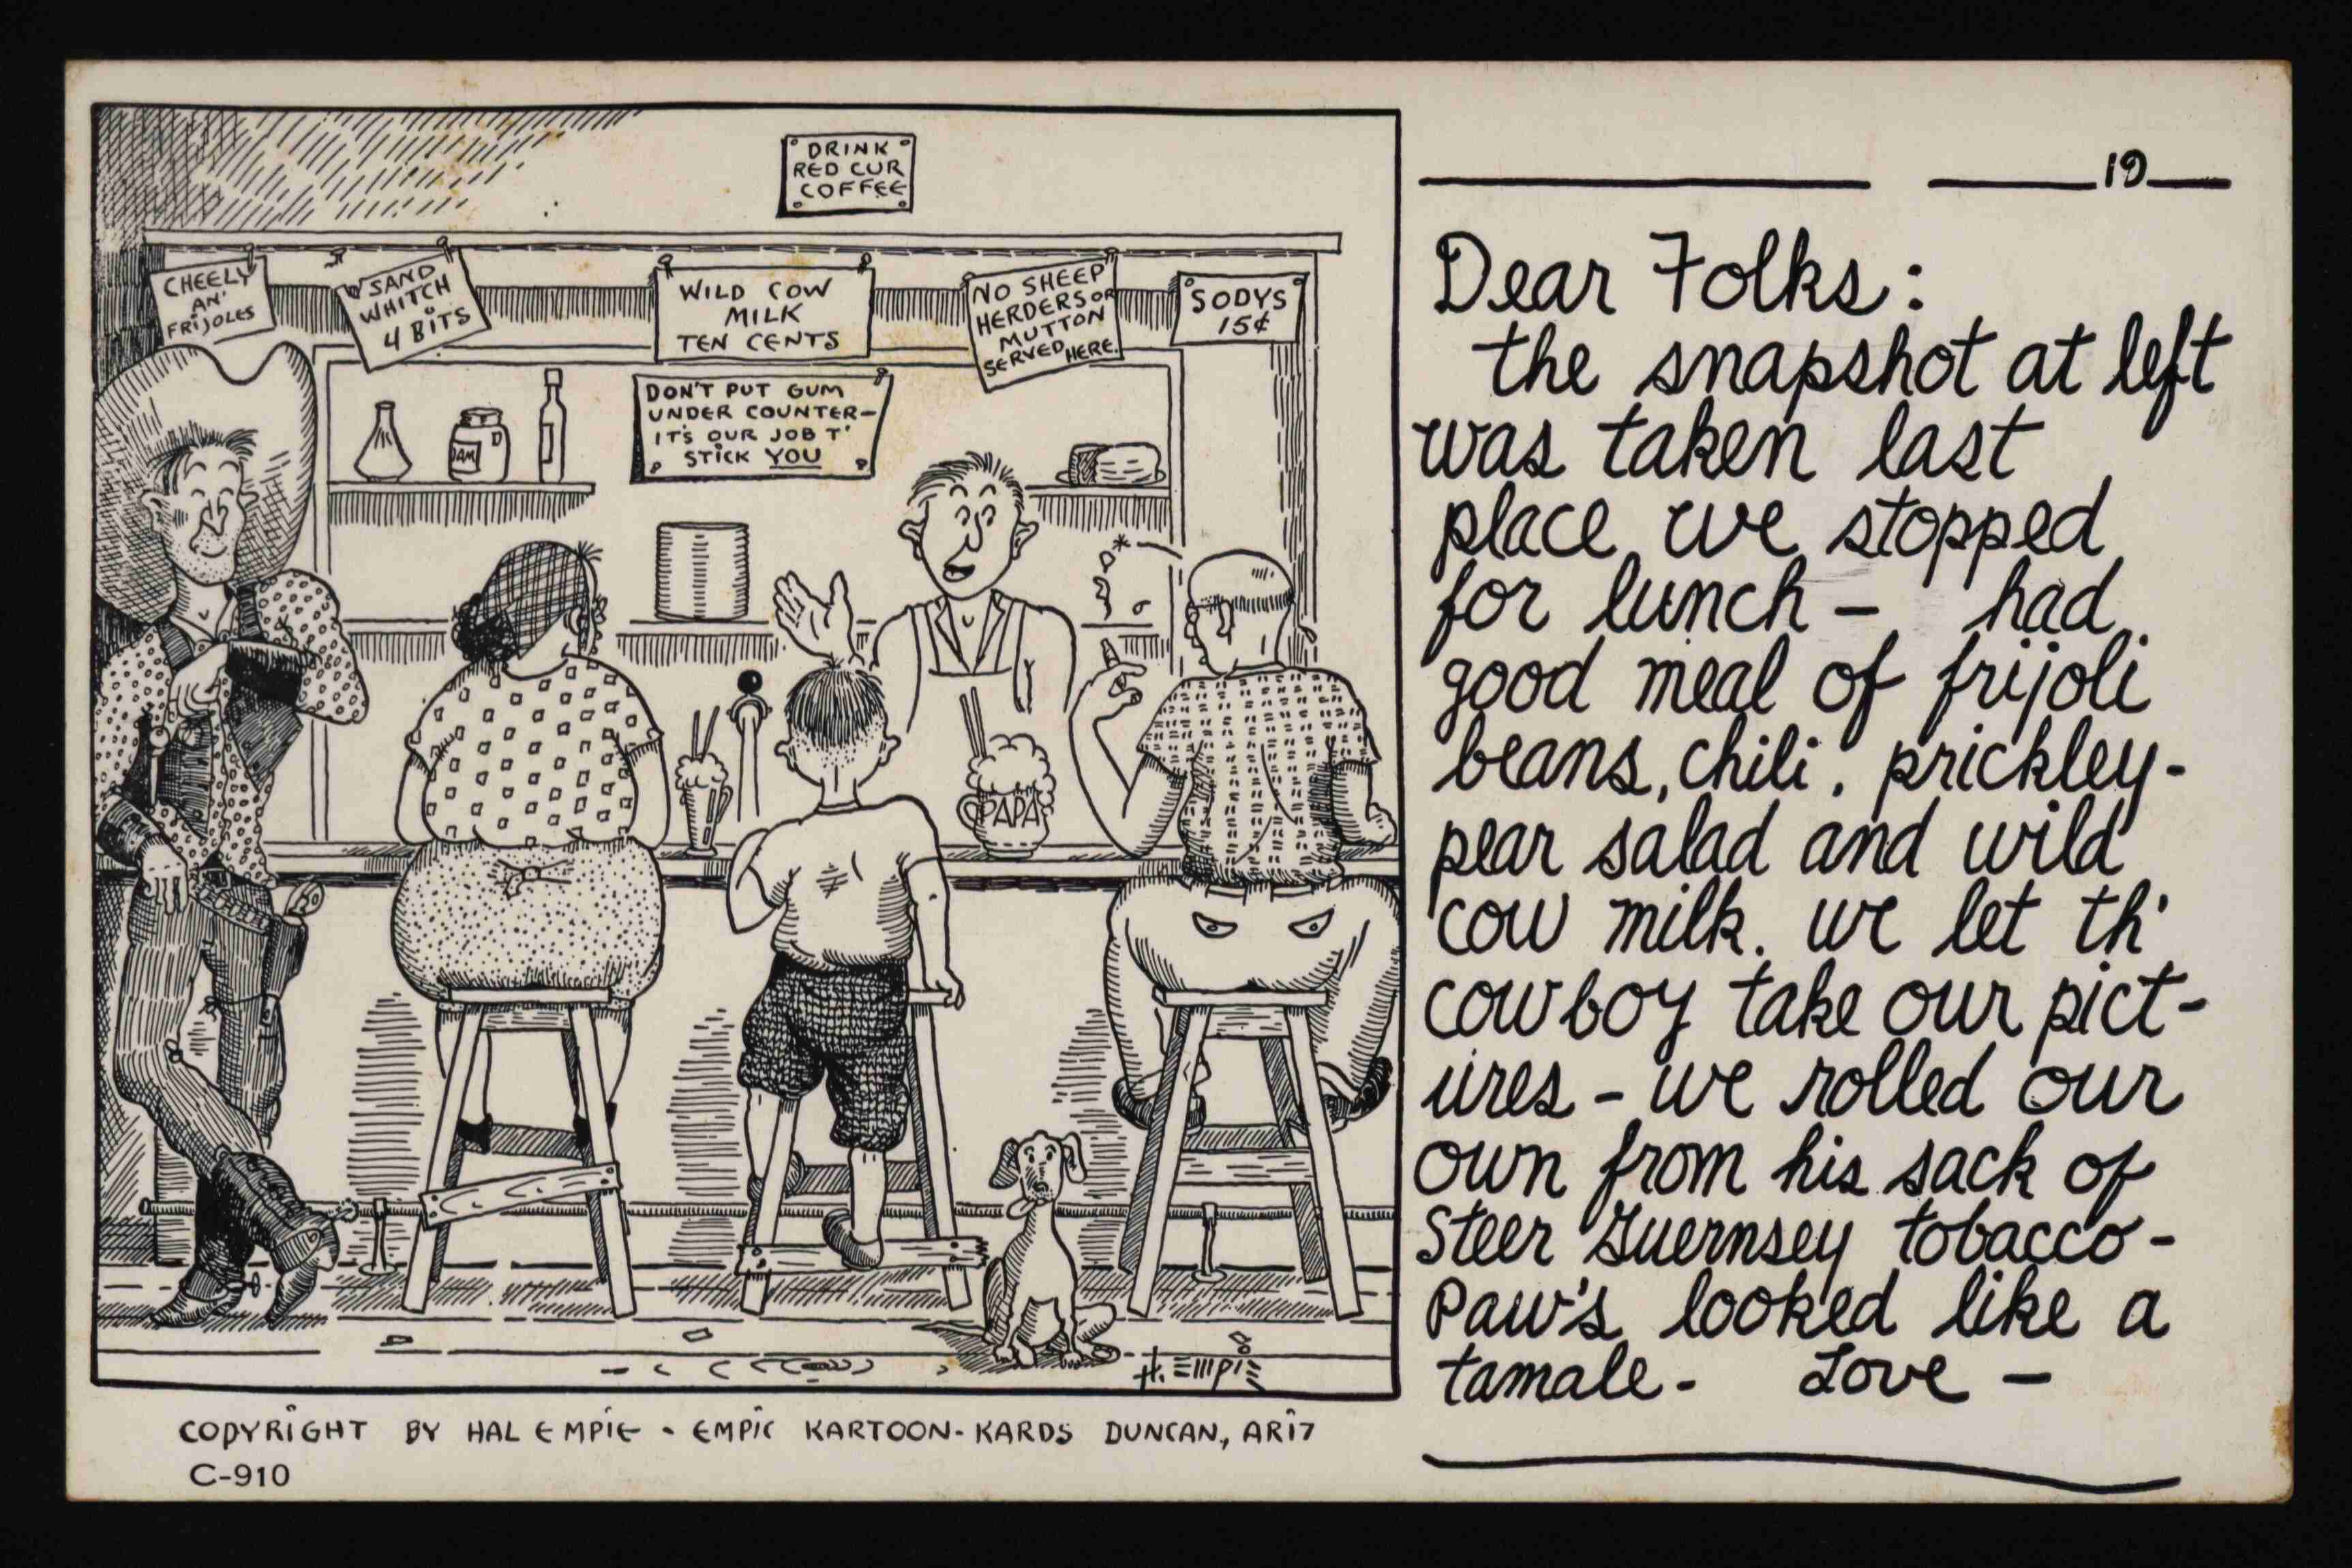 DRINK
RED CUR
COFFEE
CHEELY
AN'
FRIJOLES
SAND
WHITCH
4 BITS
WILD COW
MILK
TEN CENTS
NO SHEEP
HERDERS OR
MUTTON
SERVED HERE.
SODYS
15¢
DON'T PUT GUM
UNDER COUNTER-
IT'S OUR JOB T'
STICK YOU
JAM
PAPA
H. EMPIE
COPYRIGHT BY HAL EMPIE - EMPIE KARTOON-KARDS DUNCAN, ARIZ
C-910
19
Dear Folks:
the snapshot at left
was taken last
place we stopped
for lunch - had
good meal of frijoli
beans, chili, prickley-
pear salad and wild
cow milk. we let th'
cowboy take our pict-
ures - we rolled our
own from his sack of
Steer Guernsey tobacco-
Paw's looked like a
tamale - Love -